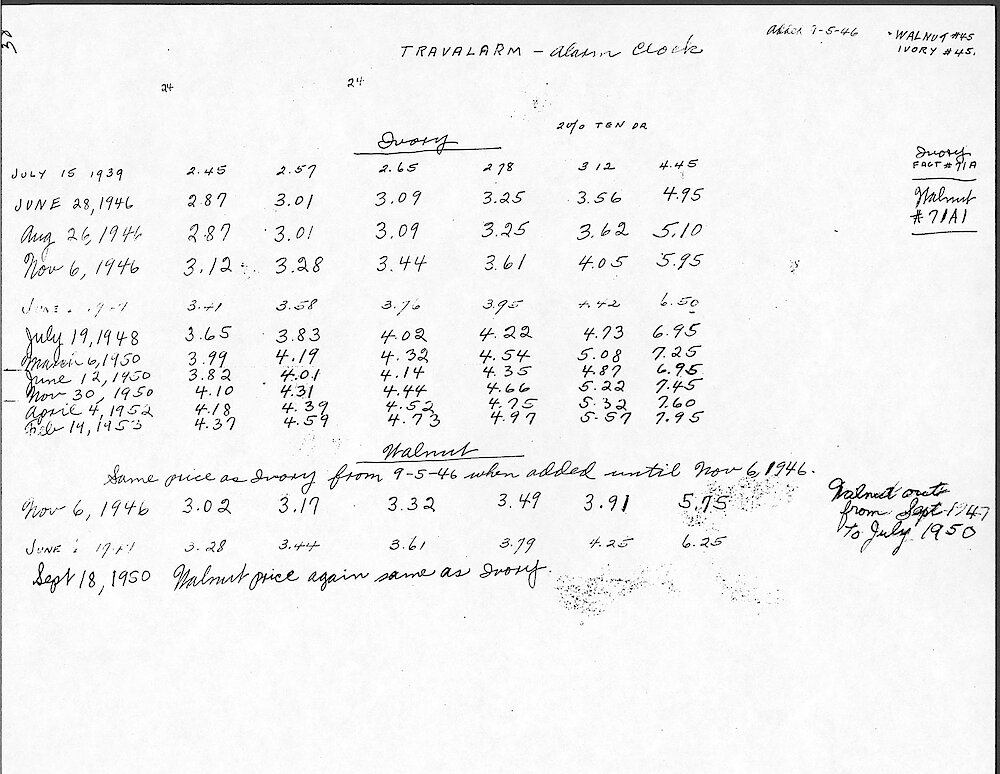 Added 9-5-46 WALNUT #45
TRAVALARM - Alarm Clock IVORY #45.
24 24
20% TEN DR
Ivory
Ivory
FACT #71A
JULY 15 1939 2.45 2.57 2.65 2 78 3 12 4.45
JUNE 28, 1946 2.87 3.01 3.09 3.25 3.56 4.95
Walnut
#71A1
Aug 26, 1946 2.87 3.01 3.09 3.25 3.62 5.10
Nov 6, 1946 3.12 3.28 3.44 3.61 4.05 5.95
JUNE 3.41 3.58 3.76 3.95 4.42 6.50
July 19, 1948 3.65 3.83 4.02 4.22 4.73 6.95
March 6, 1950 3.99 4.19 4.32 4.54 5.08 7.25
June 12, 1950 3.82 4.01 4.14 4.35 4.87 6.95
Nov 30, 1950 4.10 4.31 4.44 4.66 5.22 7.45
April 4, 1952 4.18 4.39 4.52 4.75 5.32 7.60
Feb 14, 1953 4.37 4.59 4.73 4.97 5.57 7.95
Walnut
Same price as Ivory from 9-5-46 when added until Nov 6, 1946.
Nov 6, 1946 3.02 3.17 3.32 3.49 3.91 5.75
Walnut out
from Sept 1947
to July 1950
JUNE 3.28 3.44 3.61 3.79 4.25 6.25
Sept 18, 1950 Walnut price again same as Ivory.